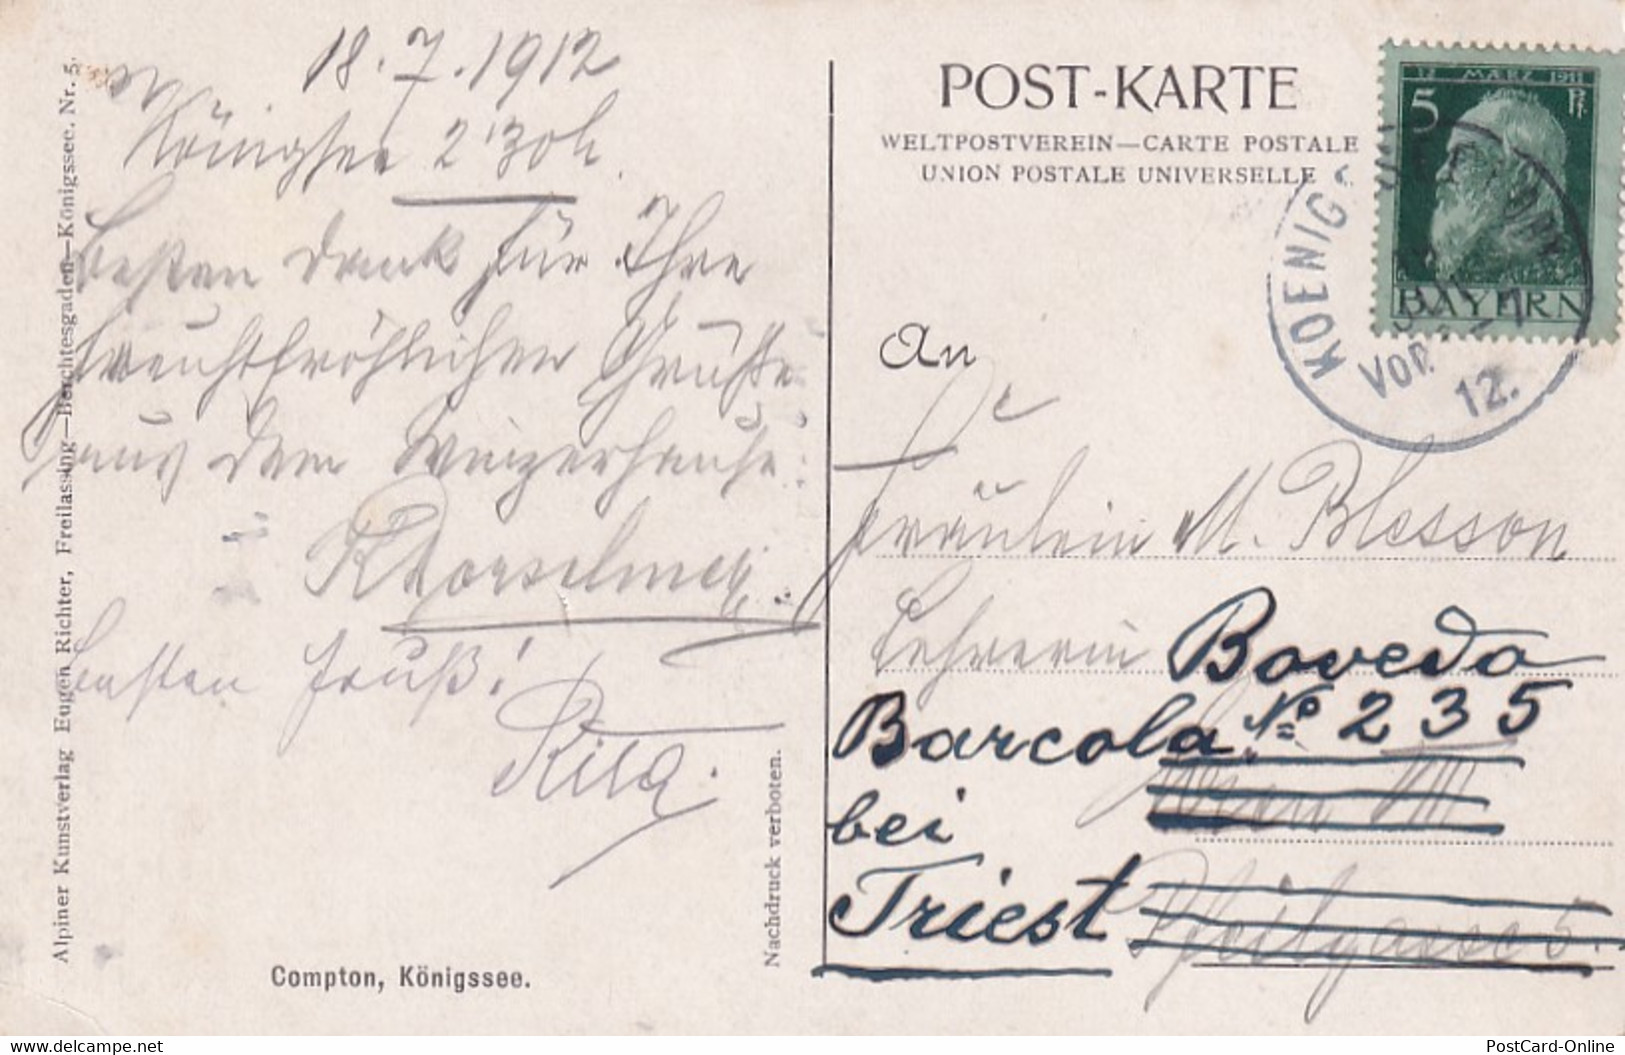 18.7.1912
Königssee
Besten Dank für Ihre
feuchtfröhlichen Grüße
aus dem Winzerhause
besten Gruß!
Rita.
Alpiner Kunstverlag Eugen Richter, Freilassing—Berchtesgaden—Königssee. Nr. 5.
Compton, Königssee.
Nachdruck verboten.
POST-KARTE
WELTPOSTVEREIN—CARTE POSTALE
UNION POSTALE UNIVERSELLE
12 MAERZ 1911
5 Pf.
BAYERN
KOENIGS
VOR
12.
An
Fräulein M. Blesson
Lehrerin Boveda
Barcola No 235
Wien VIII
bei
Triest Pfeilgasse 5.
www.delcampe.net
PostCard-Online